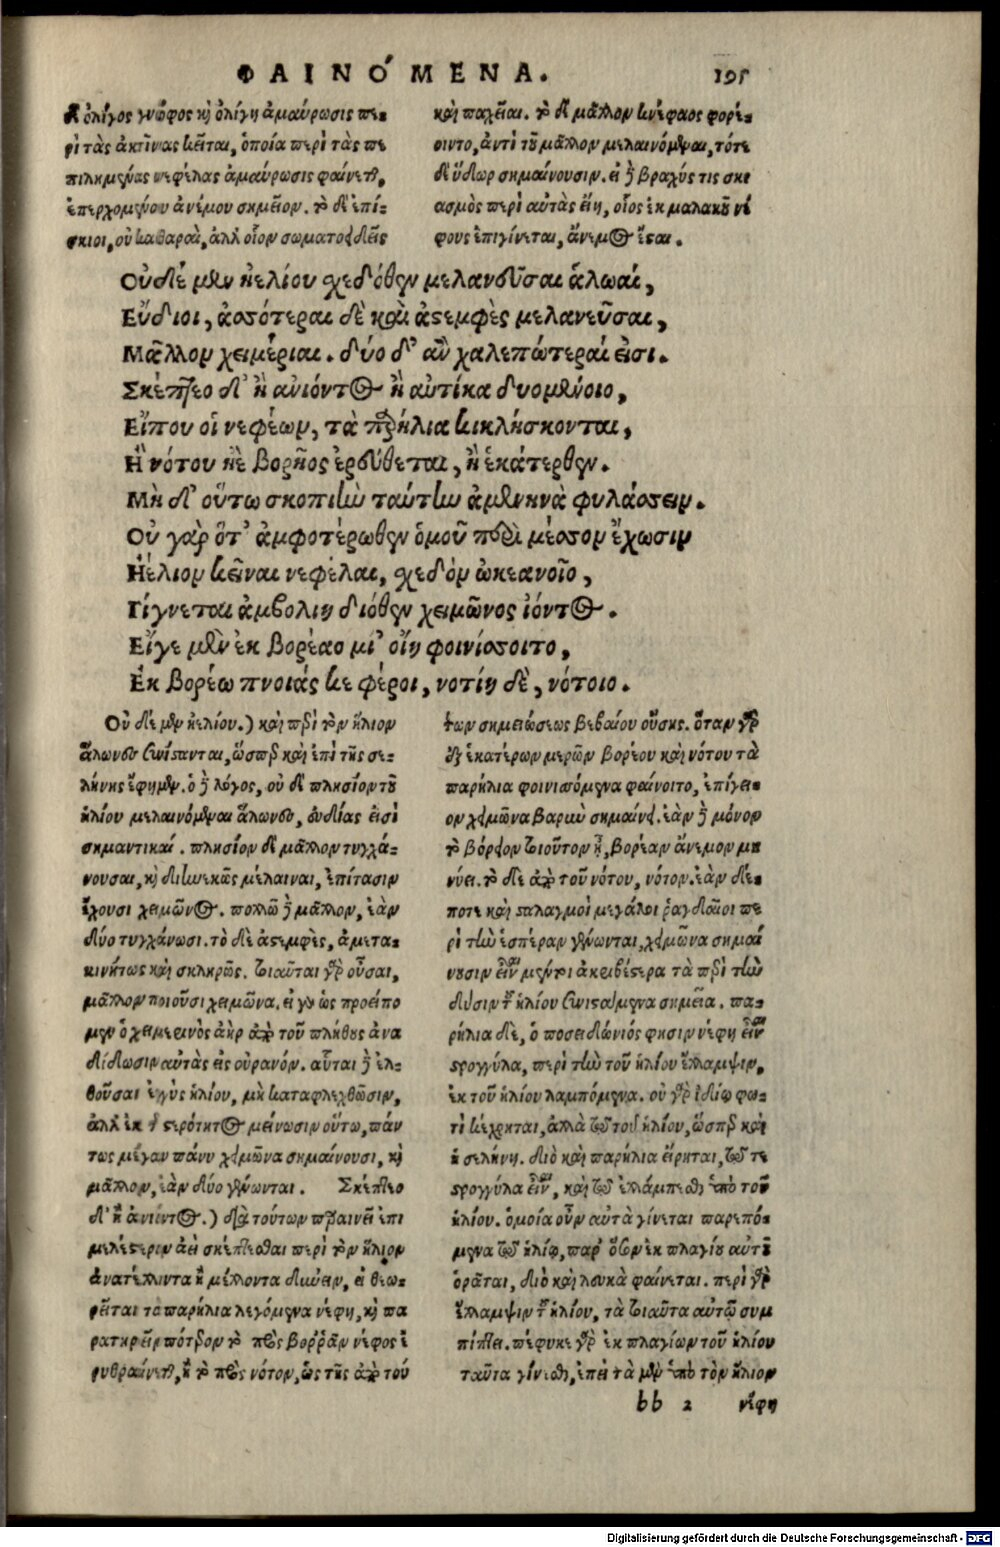 ΦΑΙΝΌΜΕΝΑ. 195
ὀλίγος γνόφος κὶ ὀλίγη ἀμαύρωσις πε-
ρὶ τὰς ἀκτῖνας κεῖται, ὁποία περὶ τὰς πε
πιλημένας νεφέλας ἀμαύρωσις φαίνεται,
ἐπερχομένου ἀνέμου σημεῖον. τὸ δ' ἐπί-
σκιοι, οὐ καθαραὶ, ἀλλ' οἷον σωματοειδεῖς
καὶ παχεῖαι. τὸ δὲ μᾶλλον κνέφαος φορέ-
οιντο, ἀντὶ τοῦ μᾶλλον μελαινόμεναι, τότε
δὲ ὕδωρ σημαίνουσιν. εἰ δὲ βραχύς τις σκε
ασμὸς περὶ αὐτὰς εἴη, οἷος ἐκ μαλακοῦ νέ
φους ἐπιγίνεται, ἄνεμος ἔσται.
Οὐδὲ μὲν ἠελίου σχεδόθεν μελανεῦσαι ἁλωαὶ,
Εὔδιοι, ἀσσότεραι δὲ καὶ ἀστεμφὲς μελανεῦσαι,
Μᾶλλον χειμέριαι. δύο δ' ἂν χαλεπώτεραί εἰσι.
Σκέπτεο δ' ἢ ἀνιόντος ἢ αὐτίκα δυομένοιο,
Εἴπου οἱ νεφέων, τὰ παρήλια κικλήσκονται,
Ἢ νότου ἠὲ βορῆος ἐρεύθεται, ἢ ἑκάτερθεν.
Μὴ δ' οὕτω σκοπιὴν ταύτην ἀμενηνὰ φυλάσσειν.
Οὐ γὰρ ὅτ' ἀμφοτέρωθεν ὁμοῦ περὶ μέσσον ἔχωσιν
Ἠέλιον κεῖναι νεφέλαι, σχεδὸν ὠκεανοῖο,
Γίγνεται ἀμβολίη διόθεν χειμῶνος ἰόντος.
Εἴγε μὲν ἐκ βορέαο μί' οἴη φοινίσσοιτο,
Ἐκ βορέω πνοιάς κε φέροι, νοτίη δὲ, νότοιο.
Οὐ δὲ μὲν ἠελίου.) καὶ περὶ τὸν ἥλιον
ἅλωνες συνίστανται, ὥσπερ καὶ ἐπὶ τῆς σε-
λήνης ἔφημεν. ὁ δὲ λόγος, οὐ δὲ πλησίον τοῦ
ἡλίου μελαινόμεναι ἅλωνες, εὐδίας εἰσὶ
σημαντικαί. πλησίον δὲ μᾶλλον τυγχά-
νουσαι, κὶ διηνεκῶς μέλαιναι, ἐπίτασιν
ἔχουσι χειμῶνος. πολλῷ δὲ μᾶλλον, ἐὰν
δύο τυγχάνωσι. τὸ δὲ ἀστεμφὲς, ἀμετα-
κινήτως καὶ σκληρῶς. τοιαῦται γὰρ οὖσαι,
μᾶλλον ποιοῦσι χειμῶνα. εἰ γὰρ ὡς προείπο
μεν ὁ χειμερινὸς ἀὴρ ἀπὸ τοῦ πλήθους ἀνα
δίδωσιν αὐτὰς εἰς οὐρανόν. αὗται δὲ ἐλ-
θοῦσαι ἐγγὺς ἡλίου, μὴ καταφλεχθῶσιν,
ἀλλ' ἐκ στερότητος μείνωσιν οὕτω, πάν
τως μέγαν πάνυ χειμῶνα σημαίνουσι, κὶ
μᾶλλον, ἐὰν δύο γένωνται. Σκέπτεο
δ' ἢ ἀνιόντος.) διὰ τούτων παραινεῖ ἐπι
μελέστερον ἀεὶ σκέπτεσθαι περὶ τὸν ἥλιον
ἀνατέλλοντα ἢ μέλλοντα δύνειν, εἰ θεω-
ρεῖται τὰ παρήλια λεγόμενα νέφη, κὶ πα
ρατηρεῖν πότερον τὸ πρὸς βορρᾶν νέφος ἐ
ρυθραίνεται, ἢ τὸ πρὸς νότον, ὡς τῆς ἀπὸ τού
των σημειώσεως βεβαίου οὔσης. ὅταν γὰρ
ἐξ ἑκατέρων μερῶν βορείου καὶ νότου τὰ
παρήλια φοινισσόμενα φαίνοιτο, ἐπίγει-
ον χειμῶνα βαρὺν σημαίνει. ἐὰν δὲ μόνον
τὸ βόρειον τοιοῦτον ᾖ, βορέαν ἄνεμον μη
νύει. τὸ δὲ ἀπὸ τοῦ νότου, νότον. ἐὰν δέ-
ποτε καὶ σταλαγμοὶ μεγάλοι ῥαγδαῖοι πε
ρὶ τὴν ἑσπέραν γένωνται, χειμῶνα σημαί
νουσιν εἶναι μέντοι ἀκριβέστερα τὰ περὶ τὴν
δύσιν τοῦ ἡλίου συνιστάμενα σημεῖα. πα-
ρήλια δὲ, ὁ ποσειδώνιός φησιν νέφη εἶναι
στρογγύλα, περὶ τὴν τοῦ ἡλίου ἔλλαμψιν,
ἐκ τοῦ ἡλίου λαμπόμενα. οὐ γὰρ ἰδίῳ φω-
τὶ κέχρηται, ἀλλὰ τῷ τοῦ ἡλίου, ὥσπερ καὶ
ἡ σελήνη. διὸ καὶ παρήλια εἴρηται, τῷ τε
στρογγύλα εἶναι, καὶ τῷ ἐλλάμπεσθαι ὑπὸ τοῦ
ἡλίου. ὁμοία οὖν αὐτὰ γίνεται παρεπό-
μενα τῷ ἡλίῳ, παρ' ὅσον ἐκ πλαγίου αὐτοῦ
ὁρᾶται, διὸ καὶ λευκὰ φαίνεται. περὶ γὰρ
ἔλλαμψιν τοῦ ἡλίου, τὰ τοιαῦτα αὐτῷ συμ
πίπτει. πέφυκε γὰρ ἐκ πλαγίων τοῦ ἡλίου
ταῦτα γίνεσθαι, ἐπεὶ τὰ μὲν ὑπὸ τὸν ἥλιον
bb 2 νέφη
Digitalisierung gefördert durch die Deutsche Forschungsgemeinschaft - DFG